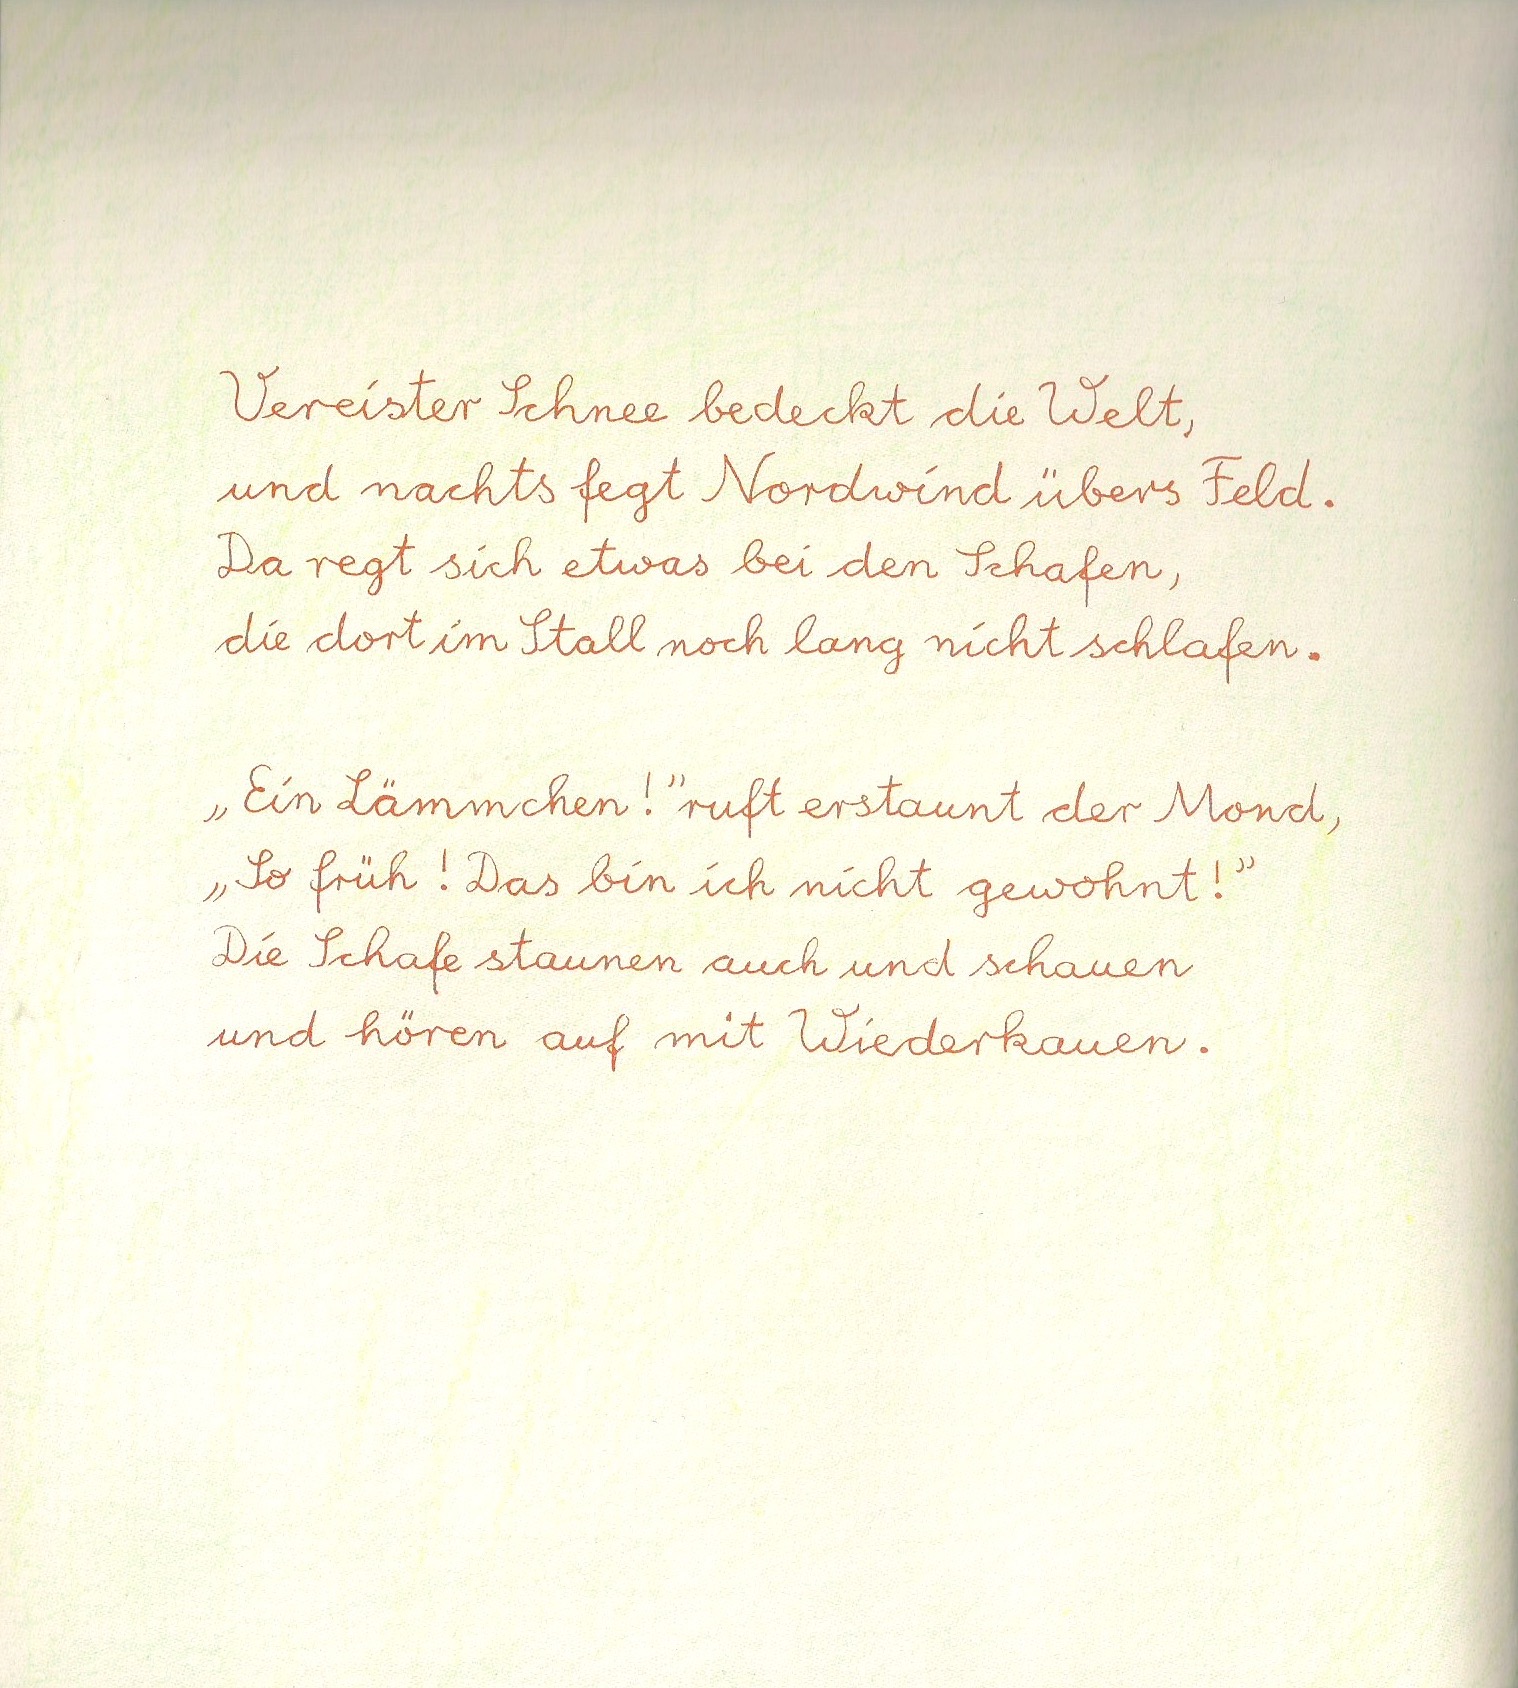 Vereister Schnee bedeckt die Welt,
und nachts fegt Nordwind übers Feld.
Da regt sich etwas bei den Schafen,
die dort im Stall noch lang nicht schlafen.
„Ein Lämmchen!” ruft erstaunt der Mond,
„So früh! Das bin ich nicht gewohnt!”
Die Schafe staunen auch und schauen
und hören auf mit Wiederkauen.